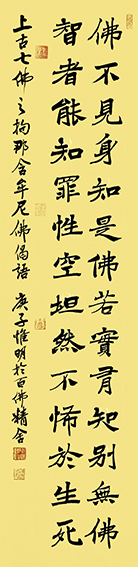 佛不見身知是佛若實有知別無佛
智者能知罪性空坦然不怖於生死
上古七佛之拘那含牟尼佛偈語 庚子惟明於百佛精舍